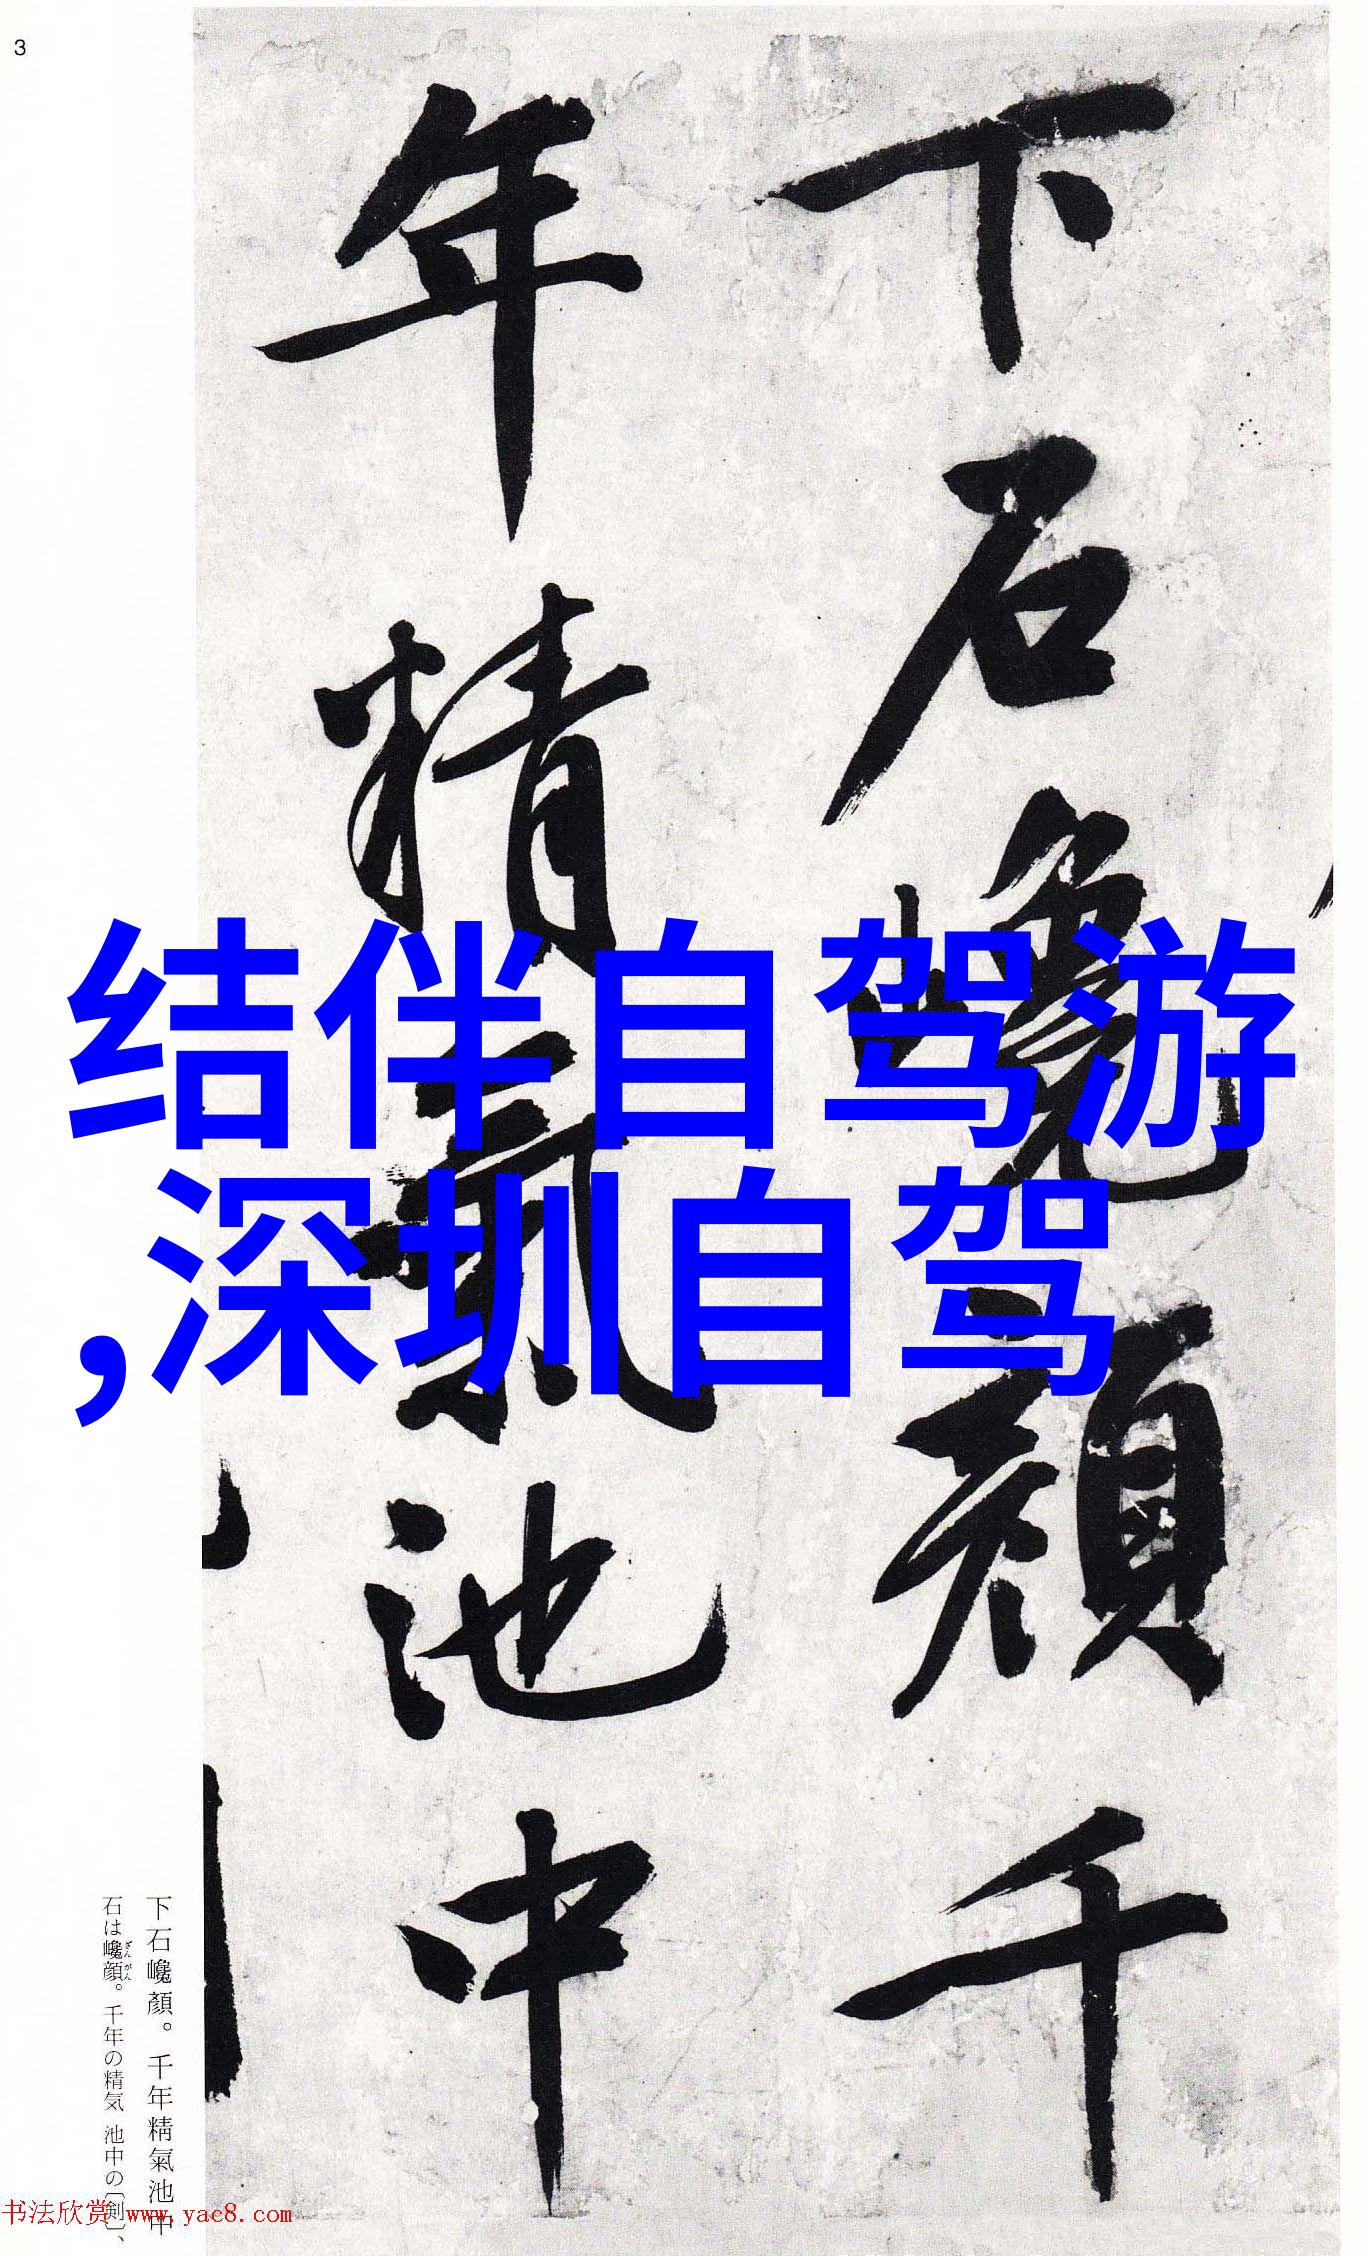 3
下石巉顏千
年精氣池中
结伴自驾游
,深圳自驾
下石巉顏。千年精氣池中
石は巉顔。千年の精気 池中の〔剣〕、
ざんがん
书法欣赏 www.yac8.com